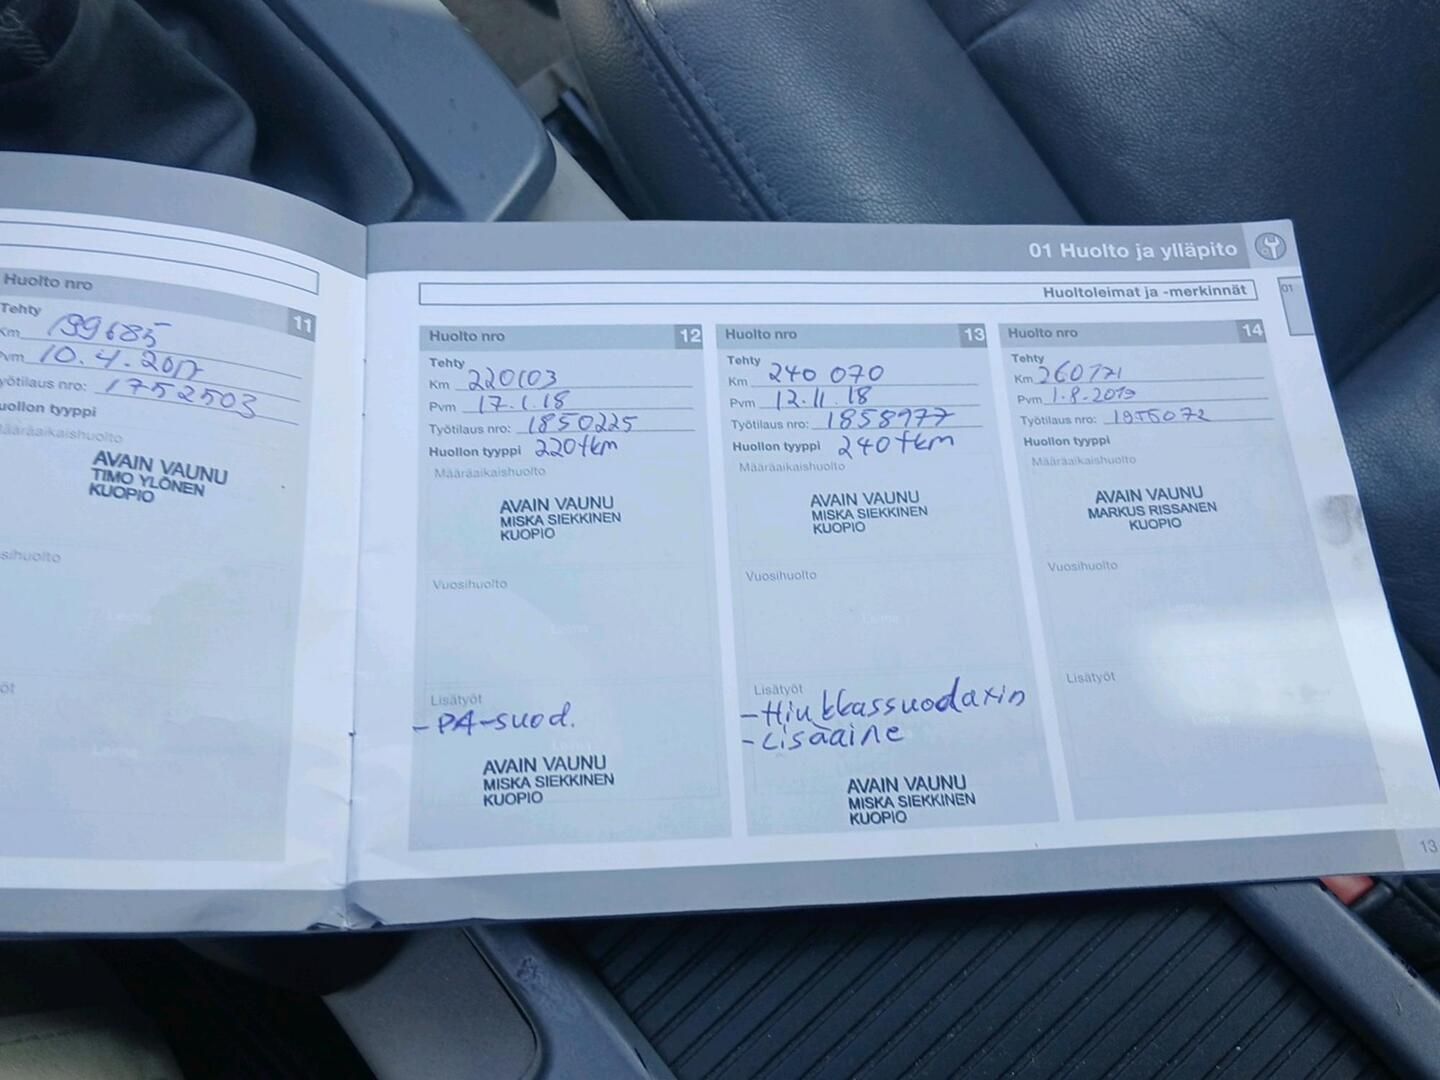 Huolto nro 11
Tehty
Km 199685
Pvm 10.4.2017
Työtilaus nro: 1752503
Huollon tyyppi
Määräaikaishuolto
AVAIN VAUNU
TIMO YLÖNEN
KUOPIO
01 Huolto ja ylläpito
Huoltoleimat ja -merkinnät
01
Huolto nro 12
Tehty
Km 220103
Pvm 17.1.18
Työtilaus nro: 1850225
Huollon tyyppi 220tkm
Määräaikaishuolto
AVAIN VAUNU
MISKA SIEKKINEN
KUOPIO
Vuosihuolto
Leima
Lisätyöt
-PA-suod.
AVAIN VAUNU
MISKA SIEKKINEN
KUOPIO
Huolto nro 13
Tehty
Km 240 070
Pvm 12.11.18
Työtilaus nro: 1858977
Huollon tyyppi 240tkm
Määräaikaishuolto
AVAIN VAUNU
MISKA SIEKKINEN
KUOPIO
Vuosihuolto
Leima
Lisätyöt
-Hiukkassuodaxin
-Lisäaine
AVAIN VAUNU
MISKA SIEKKINEN
KUOPIO
Huolto nro 14
Tehty
Km 260171
Pvm 1.8.2019
Työtilaus nro: 1955072
Huollon tyyppi
Määräaikaishuolto
AVAIN VAUNU
MARKUS RISSANEN
KUOPIO
Vuosihuolto
Lisätyöt
13